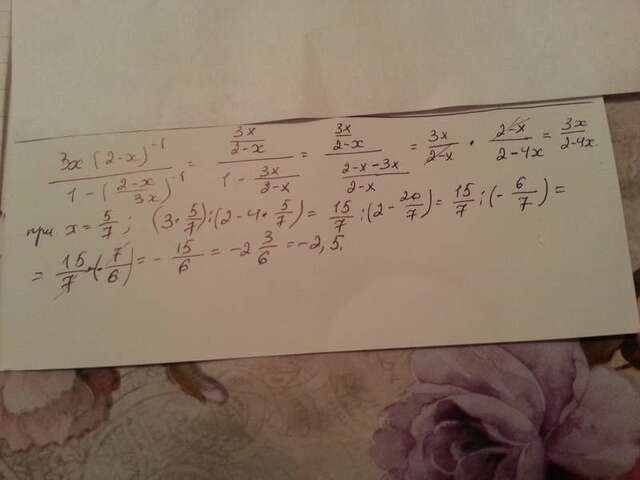 3x(2-x)⁻¹ / 1-((2-x)/3x)⁻¹ = (3x/(2-x)) / (1 - 3x/(2-x)) = (3x/(2-x)) / ((2-x-3x)/(2-x)) = 3x/(2-x) · (2-x)/(2-4x) = 3x/(2-4x).
при x = 5/7; (3·5/7):(2-4·5/7) = 15/7:(2-20/7) = 15/7:(-6/7) =
= 15/7·(-7/6) = -15/6 = -2 3/6 = -2,5.